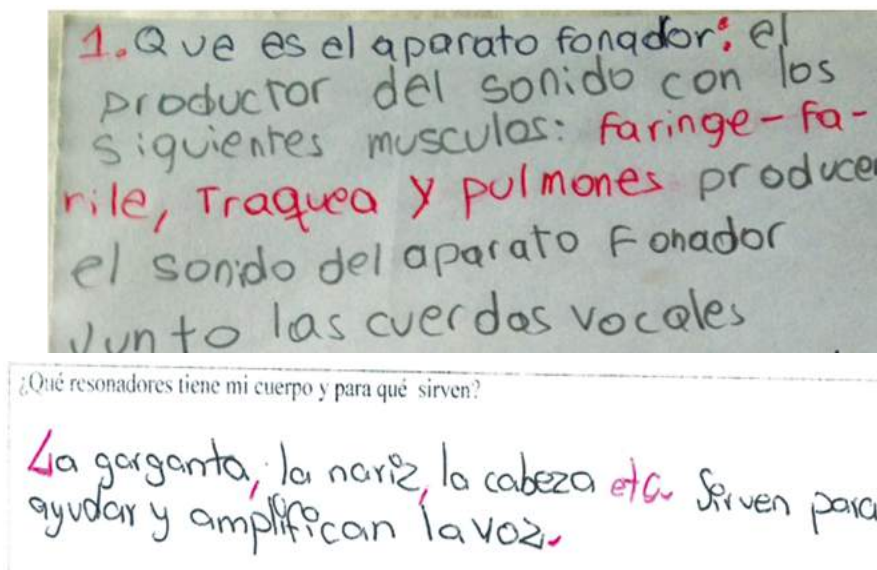 1. Que es el aparato fonador: el
productor del sonido con los
siguientes musculos: faringe-fa-
rile, Traquea y pulmones produce
el sonido del aparato Fonador
Junto las cuerdas vocales
¿Qué resonadores tiene mi cuerpo y para qué sirven?
La garganta, la nariz, la cabeza etc. Sirven para
ayudar y amplifican la voz.